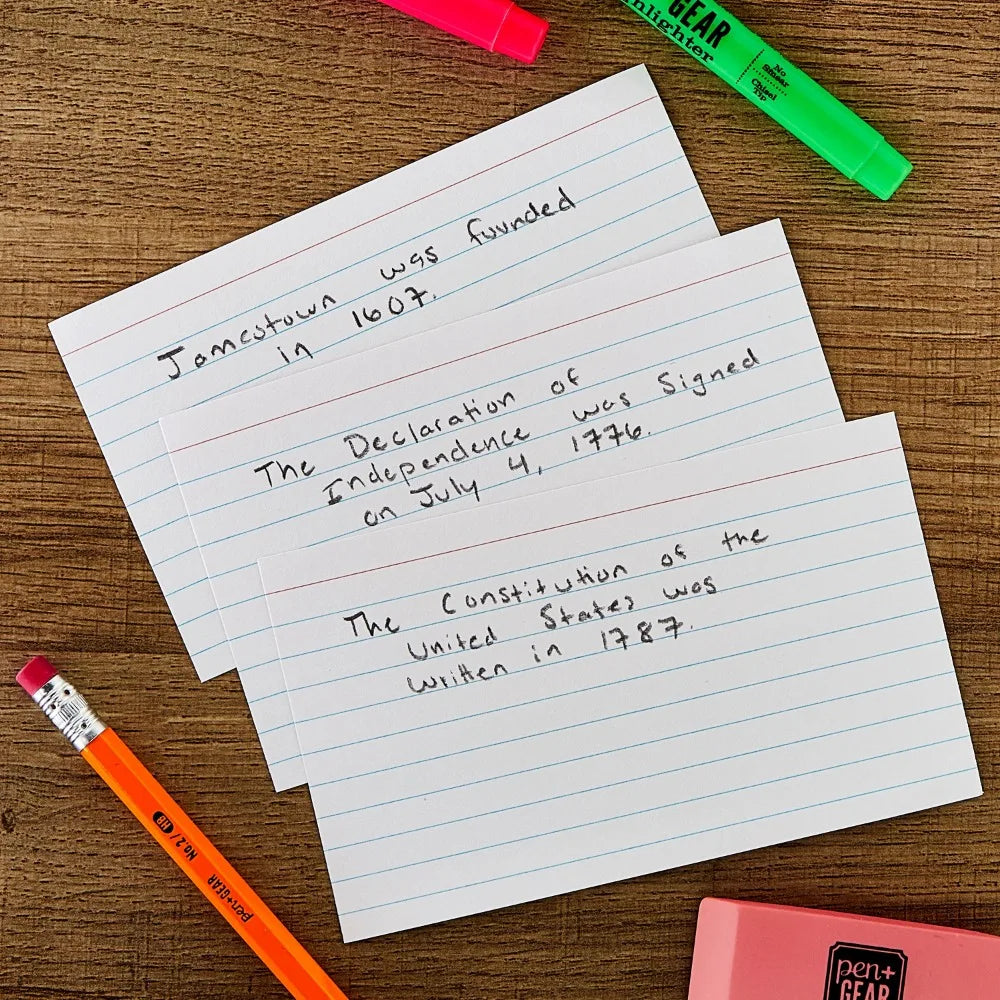 GEAR
hlighter
No
Smear
Chisel
Tip
Jamestown was founded
in 1607.
The Declaration of
Independence was Signed
on July 4, 1776.
The Constitution of the
United States was
written in 1787.
No.2/HB
pen+GEAR
pen+
GEAR